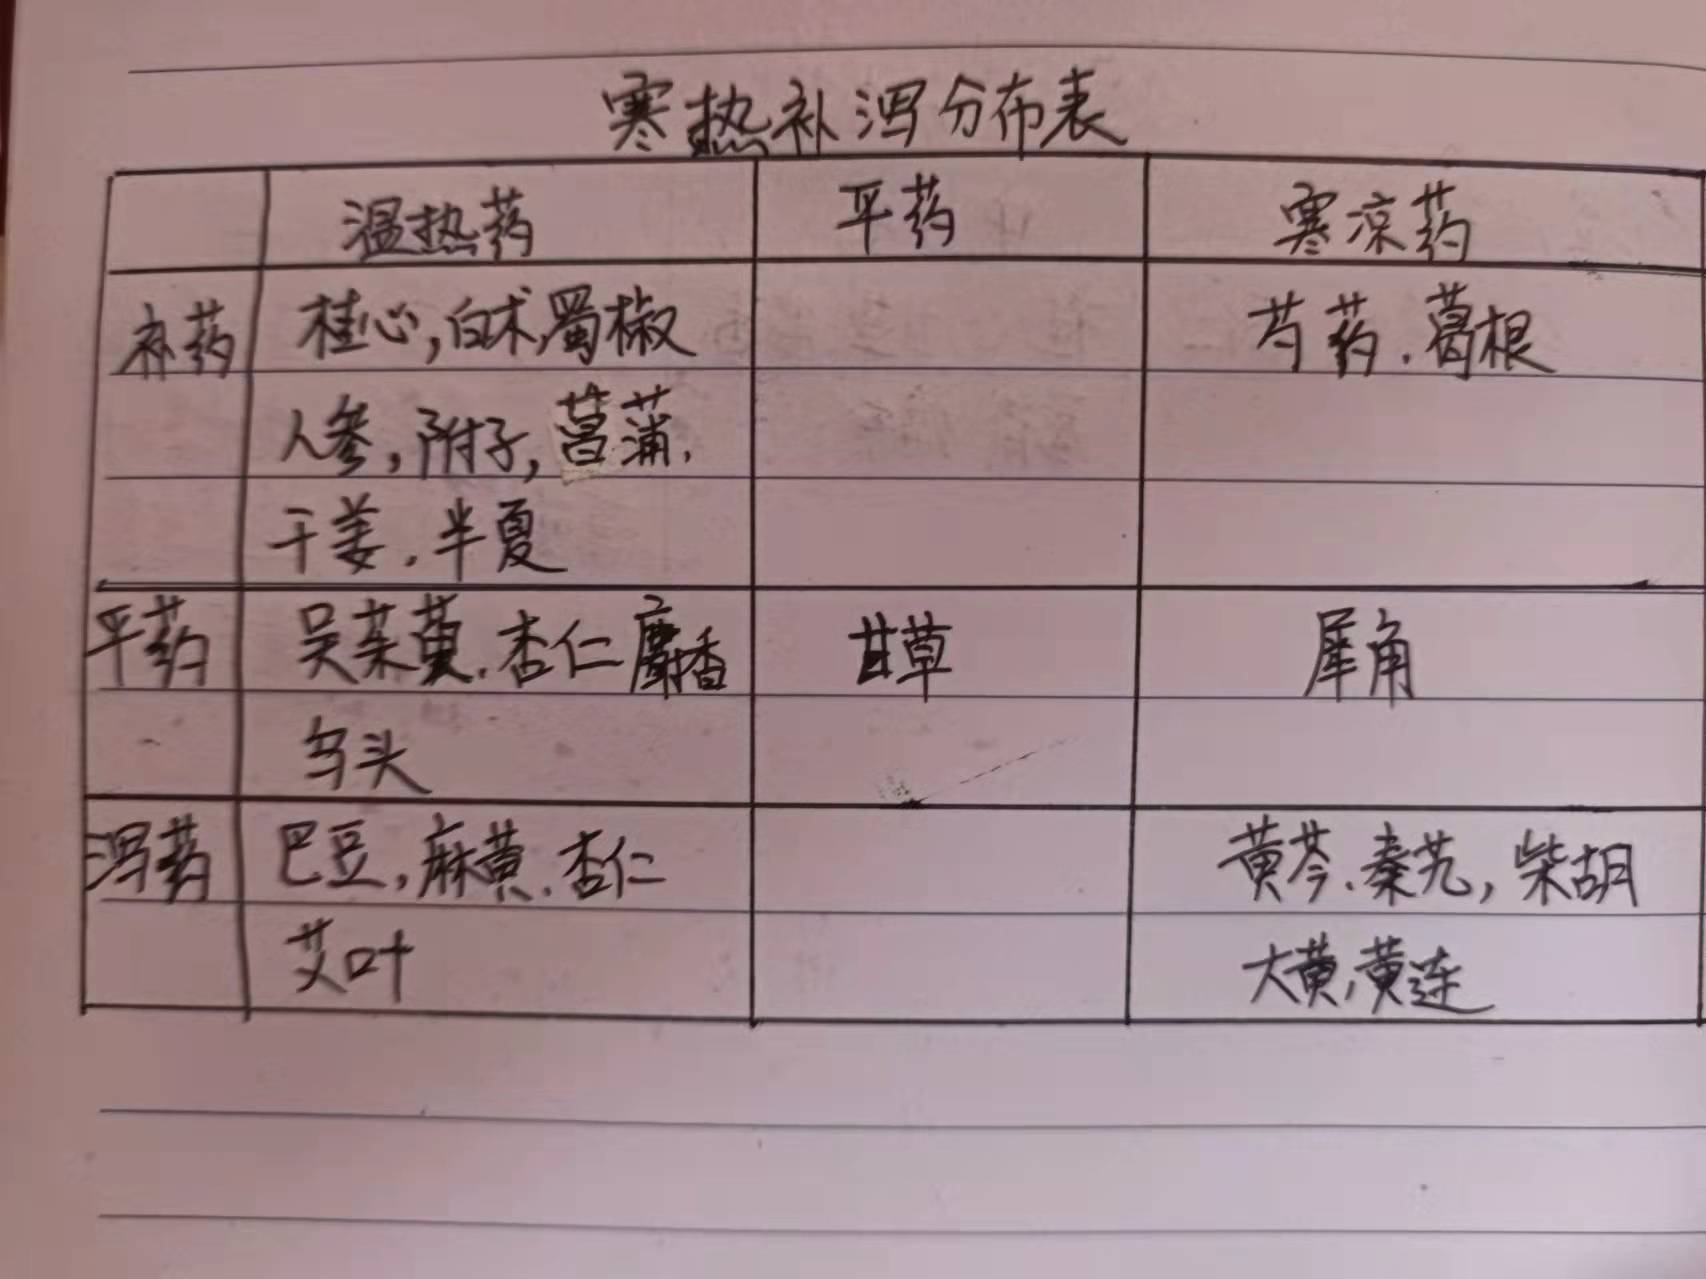 寒热补泻分布表
温热药 平药 寒凉药
补药 桂心,白术,蜀椒 芍药.葛根
人参,附子,菖蒲,
干姜.半夏
平药 吴茱萸.杏仁 麝香 甘草 犀角
乌头
泻药 巴豆,麻黄.杏仁 黄芩.秦艽,柴胡
艾叶 大黄,黄连